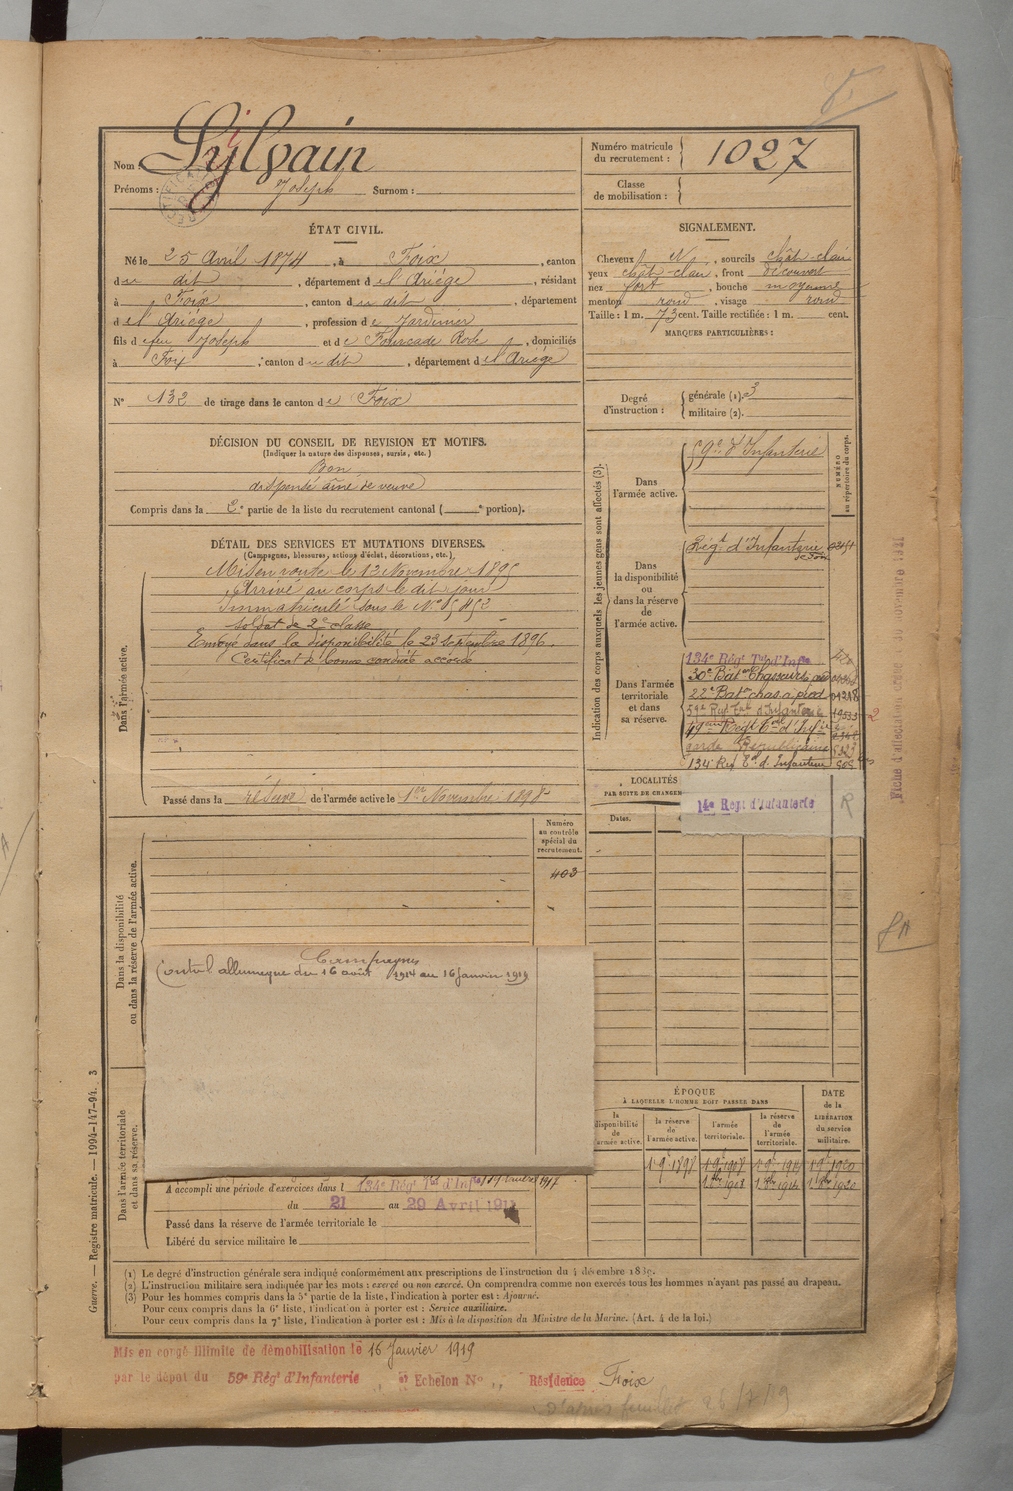 Nom : Sylvain
Prénoms : Joseph Surnom :
Numéro matricule du recrutement : 1027
Classe de mobilisation :
ÉTAT CIVIL.
Né le 25 Avril 1874, à Foix, canton
du dit, département de l'Ariège, résidant
à Foix, canton du dit, département
de l'Ariège, profession de Jardinier
fils de feu Joseph et de Fourcade Rose, domiciliés
à Foix, canton du dit, département de l'Ariège
N° 132 de tirage dans le canton de Foix
SIGNALEMENT.
Cheveux N, sourcils chât-clair
yeux chât-clair, front découvert
nez fort, bouche moyenne
menton rond, visage rond
Taille : 1 m. 73 cent. Taille rectifiée : 1 m. cent.
MARQUES PARTICULIÈRES :
Degré d'instruction : générale (1). 3
militaire (2).
DÉCISION DU CONSEIL DE REVISION ET MOTIFS.
(Indiquer la nature des dispenses, sursis, etc.)
Bon
dispensé aîné de veuve
Compris dans la 2e partie de la liste du recrutement cantonal ( e portion).
DÉTAIL DES SERVICES ET MUTATIONS DIVERSES.
(Campagnes, blessures, actions d'éclat, décorations, etc.)
Dans l'armée active.
Mis en route le 13 Novembre 1895
Arrivé au corps le dit jour
Immatriculé sous le N°
Soldat de 2e classe
Envoyé dans la disponibilité le 23 Septembre 1896.
Certificat de bonne conduite accordé
Passé dans la réserve de l'armée active le 1er Novembre 1898
Indication des corps auxquels les jeunes gens sont affectés (3).
NUMÉRO au répertoire du corps.
Dans l'armée active.
59e d'Infanterie
Dans la disponibilité ou dans la réserve de l'armée active.
Régt d'Infanterie
Dans l'armée territoriale et dans sa réserve.
134e Régt Tal d'Infie
30e Baton Chasseurs
22e Baton chas. à pied 04218
59e Regt d'Infanterie
49eme Regt Tal d'Infie
garde Républicaine
134 Reg Tal d'Infanterie
LOCALITÉS
PAR SUITE DE CHANGEM
14e Régt d'Infanterie R
Dates.
Dans la disponibilité ou dans la réserve de l'armée active.
Numéro au contrôle spécial du recrutement.
403
Campagnes
Contre l'allemagne du 16 août 1914 au 16 Janvier 1919
Dans l'armée territoriale et dans sa réserve.
A accompli une période d'exercices dans l 134e Régt Tal d'Infie
du 21 au 29 Avril
Passé dans la réserve de l'armée territoriale le
Libéré du service militaire le
ÉPOQUE
À LAQUELLE L'HOMME DOIT PASSER DANS
la disponibilité de l'armée active.
la réserve de l'armée active.
l'armée territoriale.
la réserve de l'armée territoriale.
DATE de la LIBÉRATION du service militaire.
(1) Le degré d'instruction générale sera indiqué conformément aux prescriptions de l'instruction du 4 décembre 1889.
(2) L'instruction militaire sera indiquée par les mots : exercé ou non exercé. On comprendra comme non exercés tous les hommes n'ayant pas passé au drapeau.
(3) Pour les hommes compris dans la 5e partie de la liste, l'indication à porter est : Ajourné.
Pour ceux compris dans la 6e liste, l'indication à porter est : Service auxiliaire.
Pour ceux compris dans la 7e liste, l'indication à porter est : Mis à la disposition du Ministre de la Marine. (Art. 4 de la loi.)
Guerre. — Registre matricule. — 1994-147-94. 3
Mis en congé illimité de démobilisation le 16 Janvier 1919
par le dépot du 59e Rég' d'Infanterie Echelon N° Résidence Foix